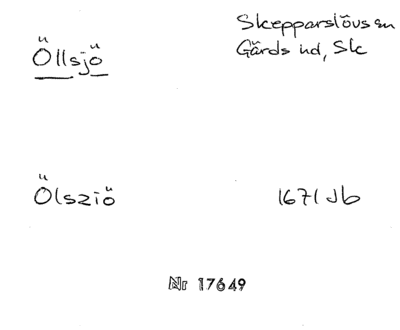 Öllsjö
Skepparslövs sn
Gärds hd, Sk
Ölsziö
1671 Jb
Nr 17649